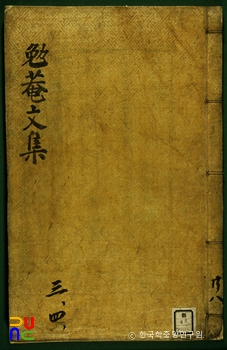 勉菴文集
三、四、
共八
© 한국학중앙연구원